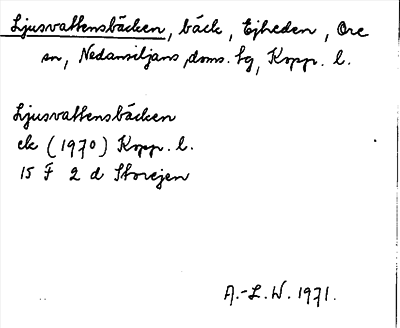 Ljusvattensbäcken, bäck, Ejheden, Ore
sn, Nedansiljans doms. tg, Kopp. l.
Ljusvattensbäcken
ek (1970) Kopp. l.
15 F 2 d Storejen
A.-L. W. 1971.